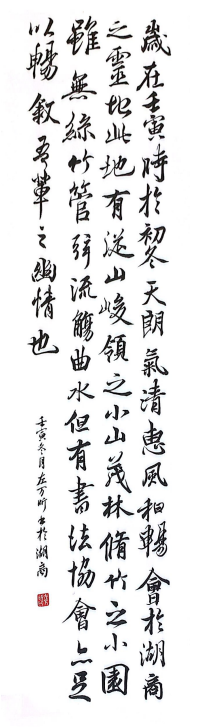 歲在壬寅時於初冬天朗氣清惠風和暢會於湖商
之靈地此地有淡山峻領之小山茂林脩竹之小園
雖無絲竹管弦流觴曲水但有書法協會亦足
以暢敘吾輩之幽情也
壬寅冬月左丁昕书於湖商